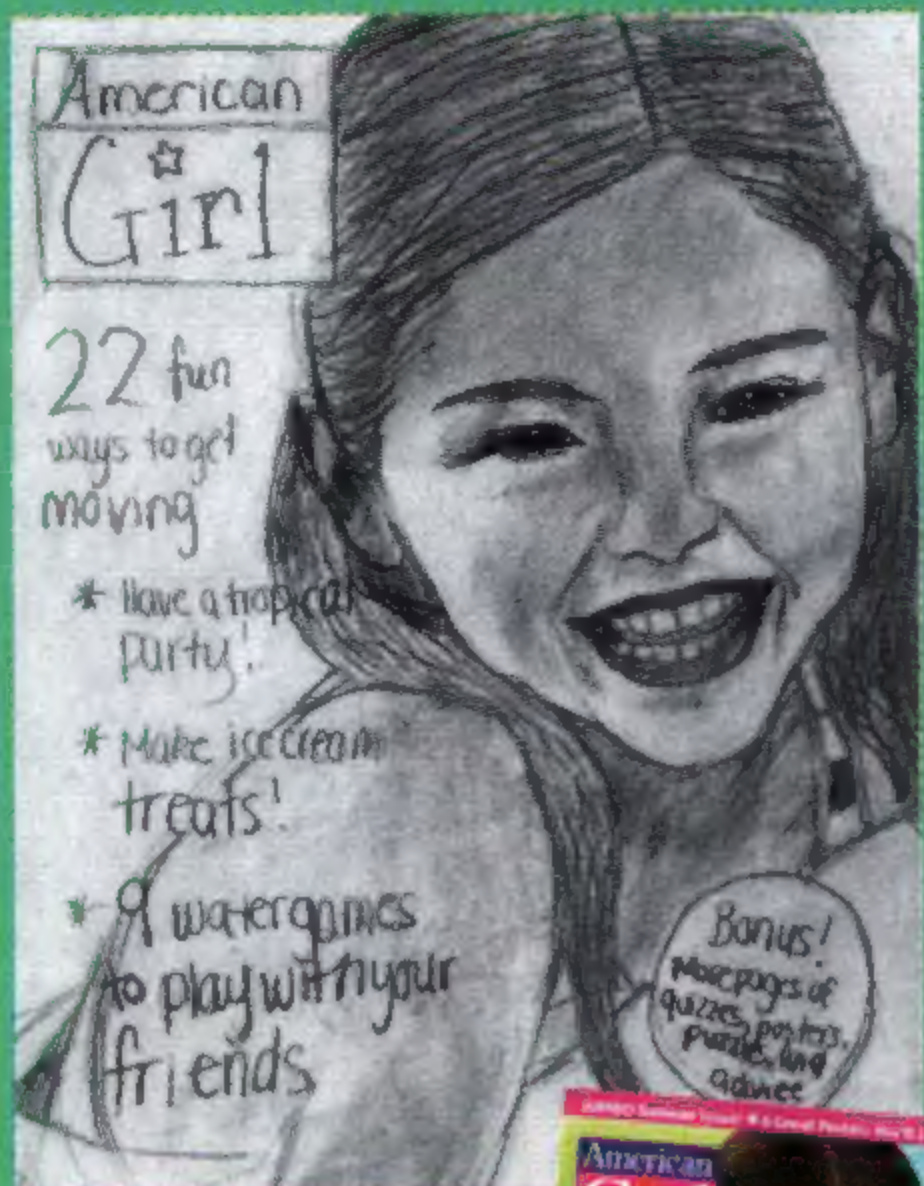 American
Girl
22 fun
ways to get
moving
* Have a tropical
party!
* Make ice cream
treats!
* 9 watergames
to play with your
friends
Bonus!
More pages of
quizzes, posters,
puzzles, and
advice
American